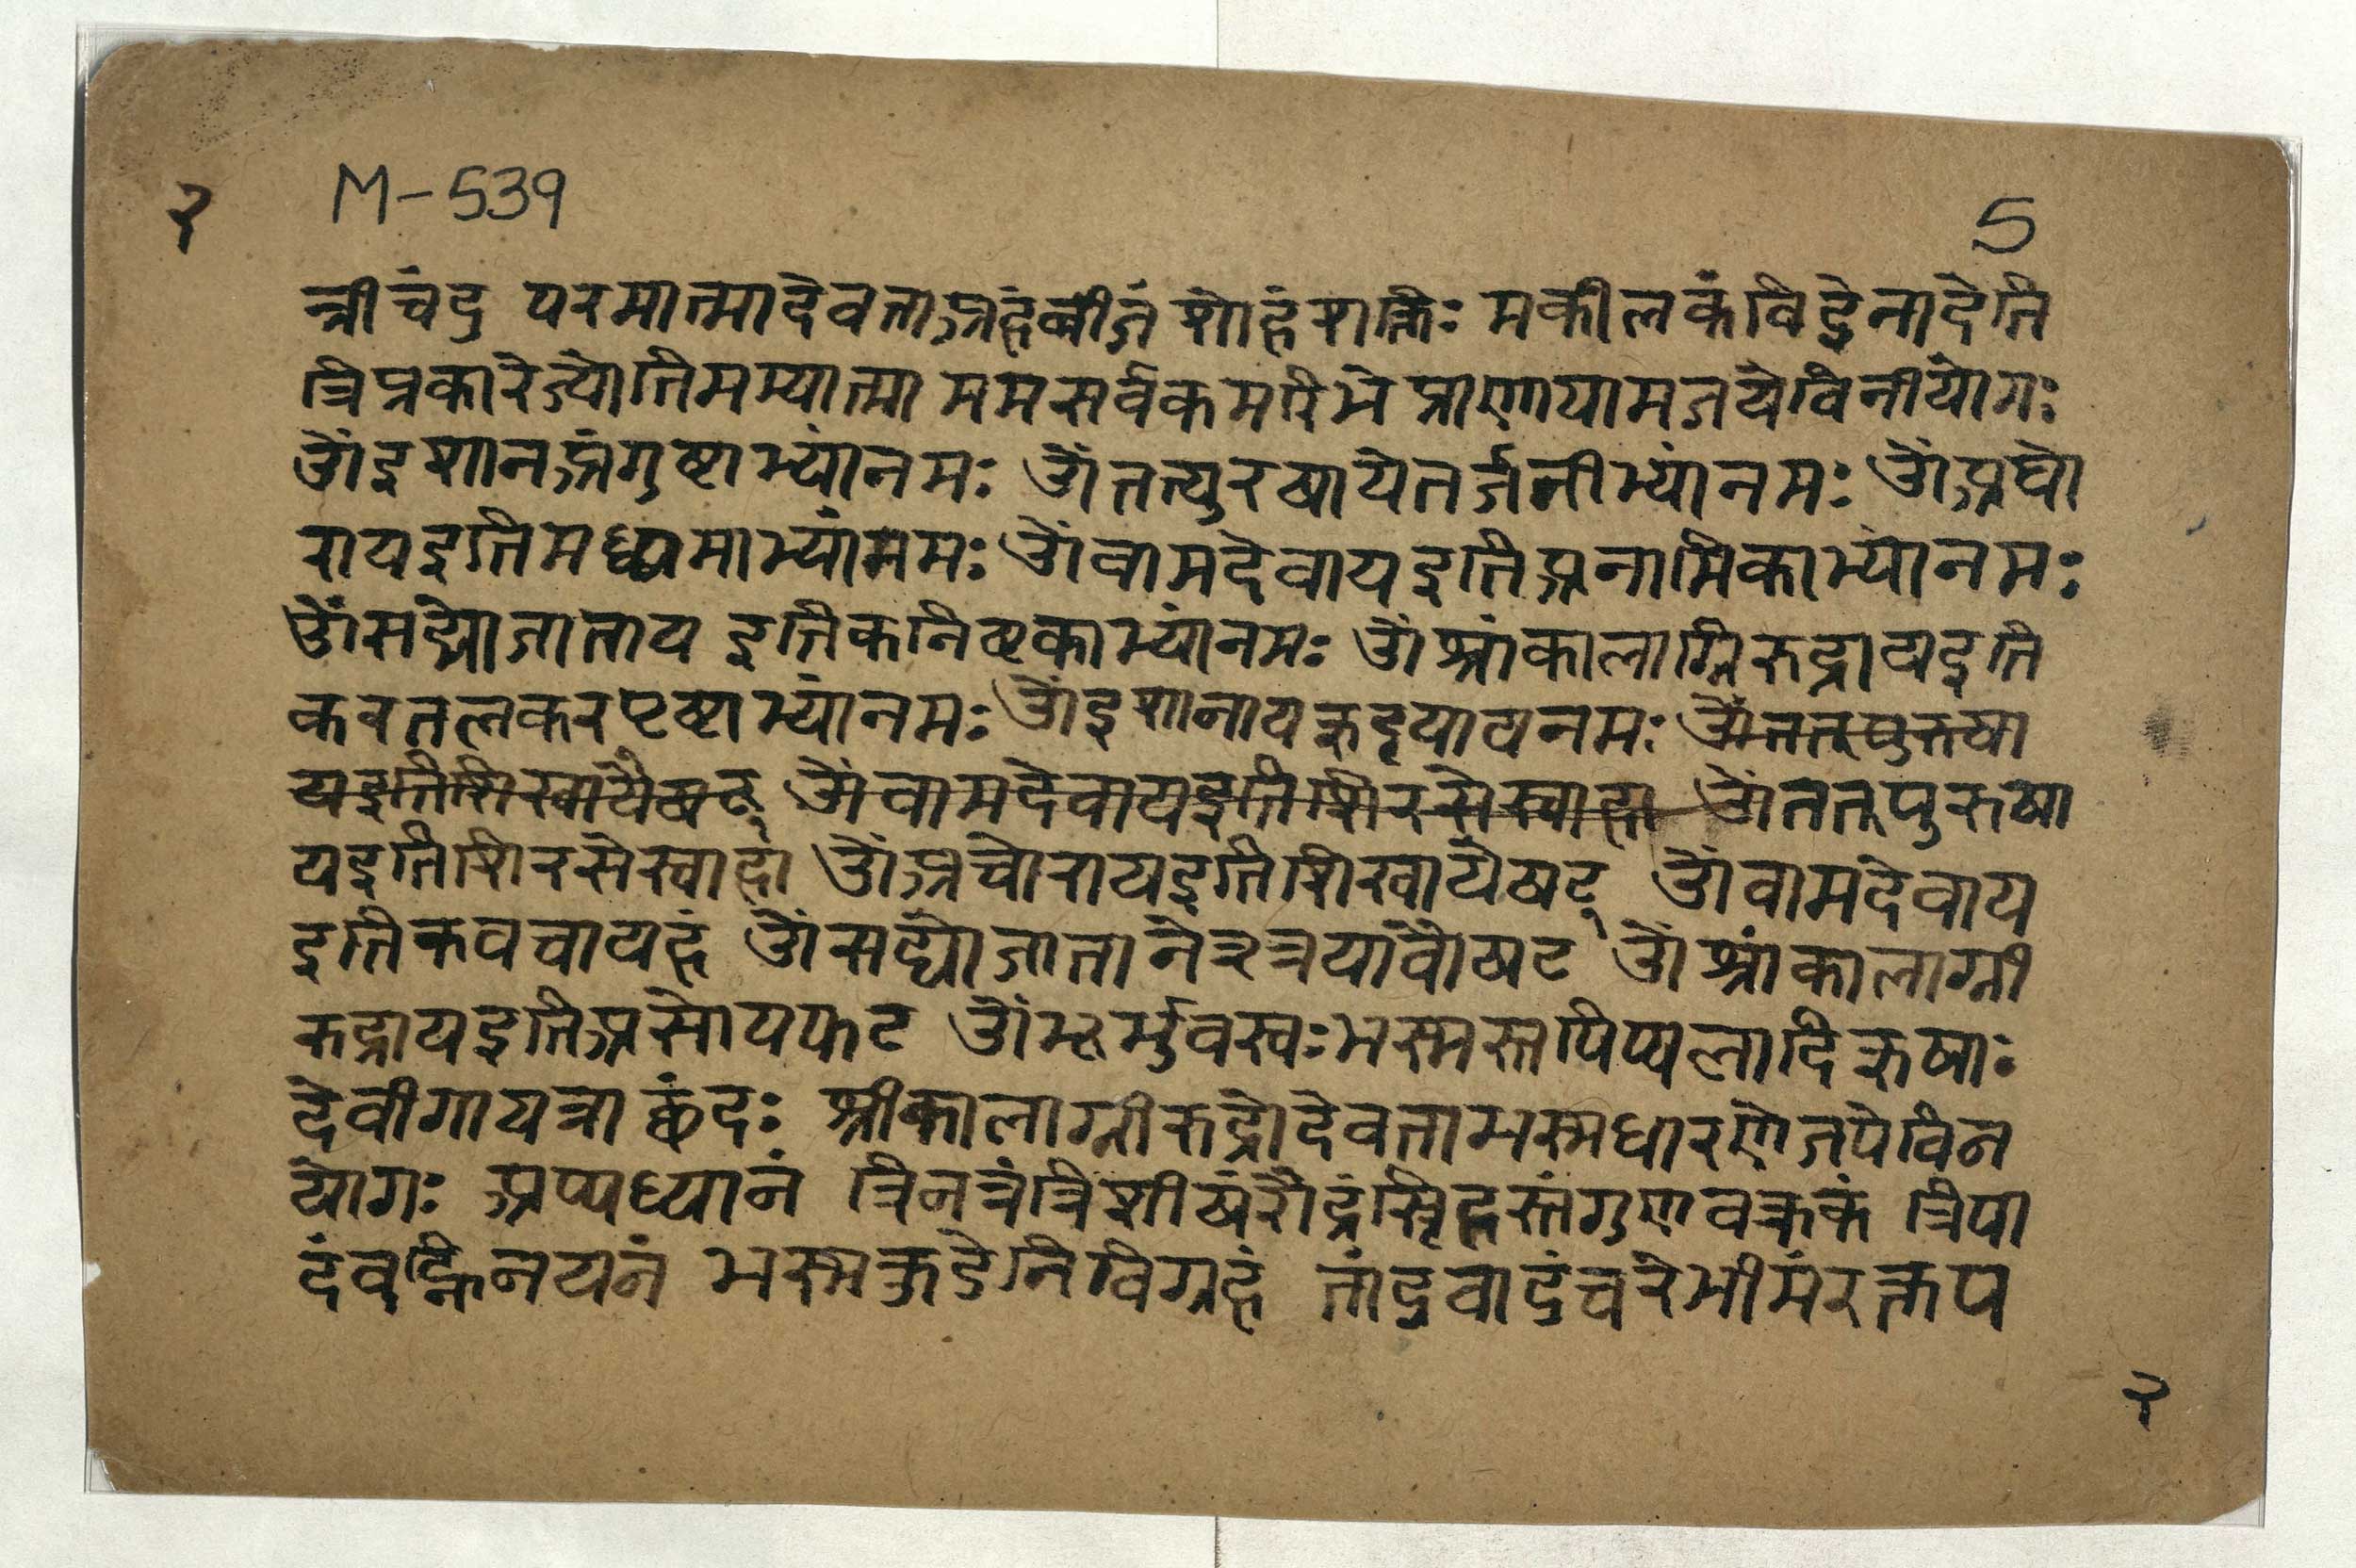 २ M-539 5
त्रीचंदु परमात्मादेवताअहंबीजं शोहंशक्तिः मकीलकंविद्वेनादेति
त्रिप्रकारेज्योतिमम्यात्मा ममसर्वकमर्गिमे प्राणायामजयेविनीयोगः
ॐइशानअंगुष्टाभ्यांनमः ॐतत्पुरषायेतर्जनीभ्यांनमः ॐअघो
रायइतिमध्यमाभ्यांममः ॐवामदेवायइतिअनामिकाभ्यांनमः
ॐसद्योजाताय इतिकनिष्टकाभ्यांनमः ॐश्रांकालाग्निरुद्रायइति
करतलकरपृष्टाभ्यांनमः ॐइशानायरुदृयायनमः ॐतत्पुरुषा
यइतिशिखायैषट् ॐवामदेवायइतिशिरसेस्वाहा ॐतत्पुरुषा
यइतिशिरसेस्वाहा ॐअघोरायइतिशिखायैषट् ॐवामदेवाय
इतिकवचायहं ॐसद्योजातानेत्रत्रयावौषट ॐश्रांकालाग्नी
रुद्रायइतिअसोयफट ॐभूर्भुवस्वःभस्मस्तपिप्पलादिरुषाः
देवीगायत्रा छंदः श्रीकालाग्नीरुद्रोदेवताभस्मधारणेजपेविन
योगः अप्यध्यानं त्रिनत्रंत्रिशीर्षरौद्रंसिहस्तंगुणवक्रकं त्रिपा
दंवह्निनयनं भस्मकुडेनिविग्रहं तांदुवादंचरेभीमंरक्तप
२